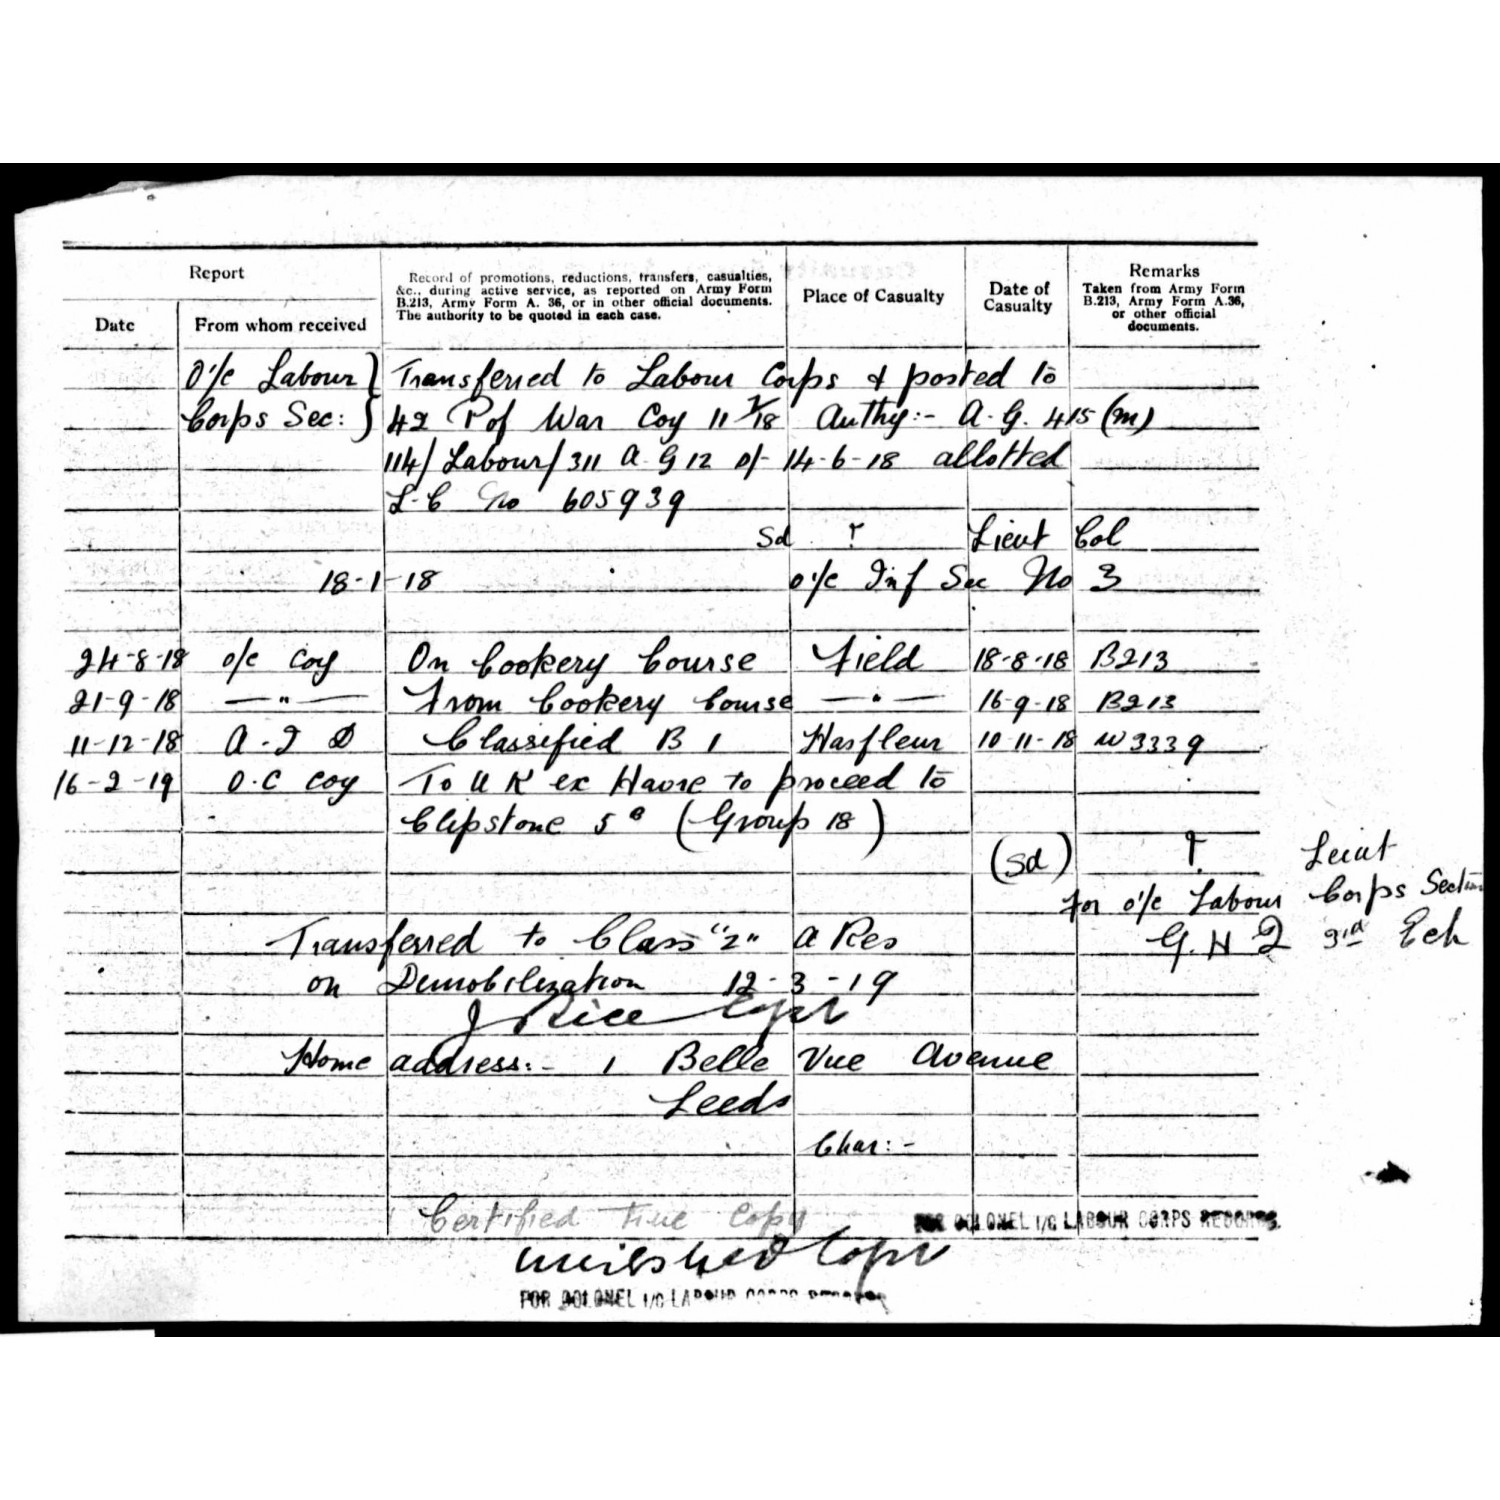 Report
Record of promotions, reductions, transfers, casualties,
&c., during active service, as reported on Army Form
B.213, Army Form A. 36, or in other official documents.
The authority to be quoted in each case.
Place of Casualty
Date of
Casualty
Remarks
Taken from Army Form
B.213, Army Form A.36,
or other official
documents.
Date
From whom received
O/c Labour } Transferred to Labour Corps & posted to
Corps Sec: } 42 P of War Coy 11 7/18 Authy:- A.G. 415 (m)
114/ Labour/ 311 A.G 12 d/- 14-6-18 allotted
L.C No 605939
Sd ? Lieut Col
18-1-18 o/c Inf Sec No 3
24-8-18 o/c Coy On Cookery Course Field 18-8-18 B213
21-9-18 — " — From Cookery Course — " — 16-9-18 B213
11-12-18 Classified B 1 Harfleur 10-11-18 W3339
16-2-19 O.C Coy To U K ex Havre to proceed to
Clipstone (Group 18)
(Sd) ? Lieut
for o/c Labour Corps Section
G.H Q 3rd Ech
Transferred to Class "Z" A Res
on Demobilization 12-3-19
J Rice Capt
Home address:- 1 Belle Vue Avenue
Leeds
Char:-
Certified True Copy
FOR COLONEL I/C LABOUR CORPS RECORDS.
Capt
FOR COLONEL I/C LABOUR CORPS RECORDS